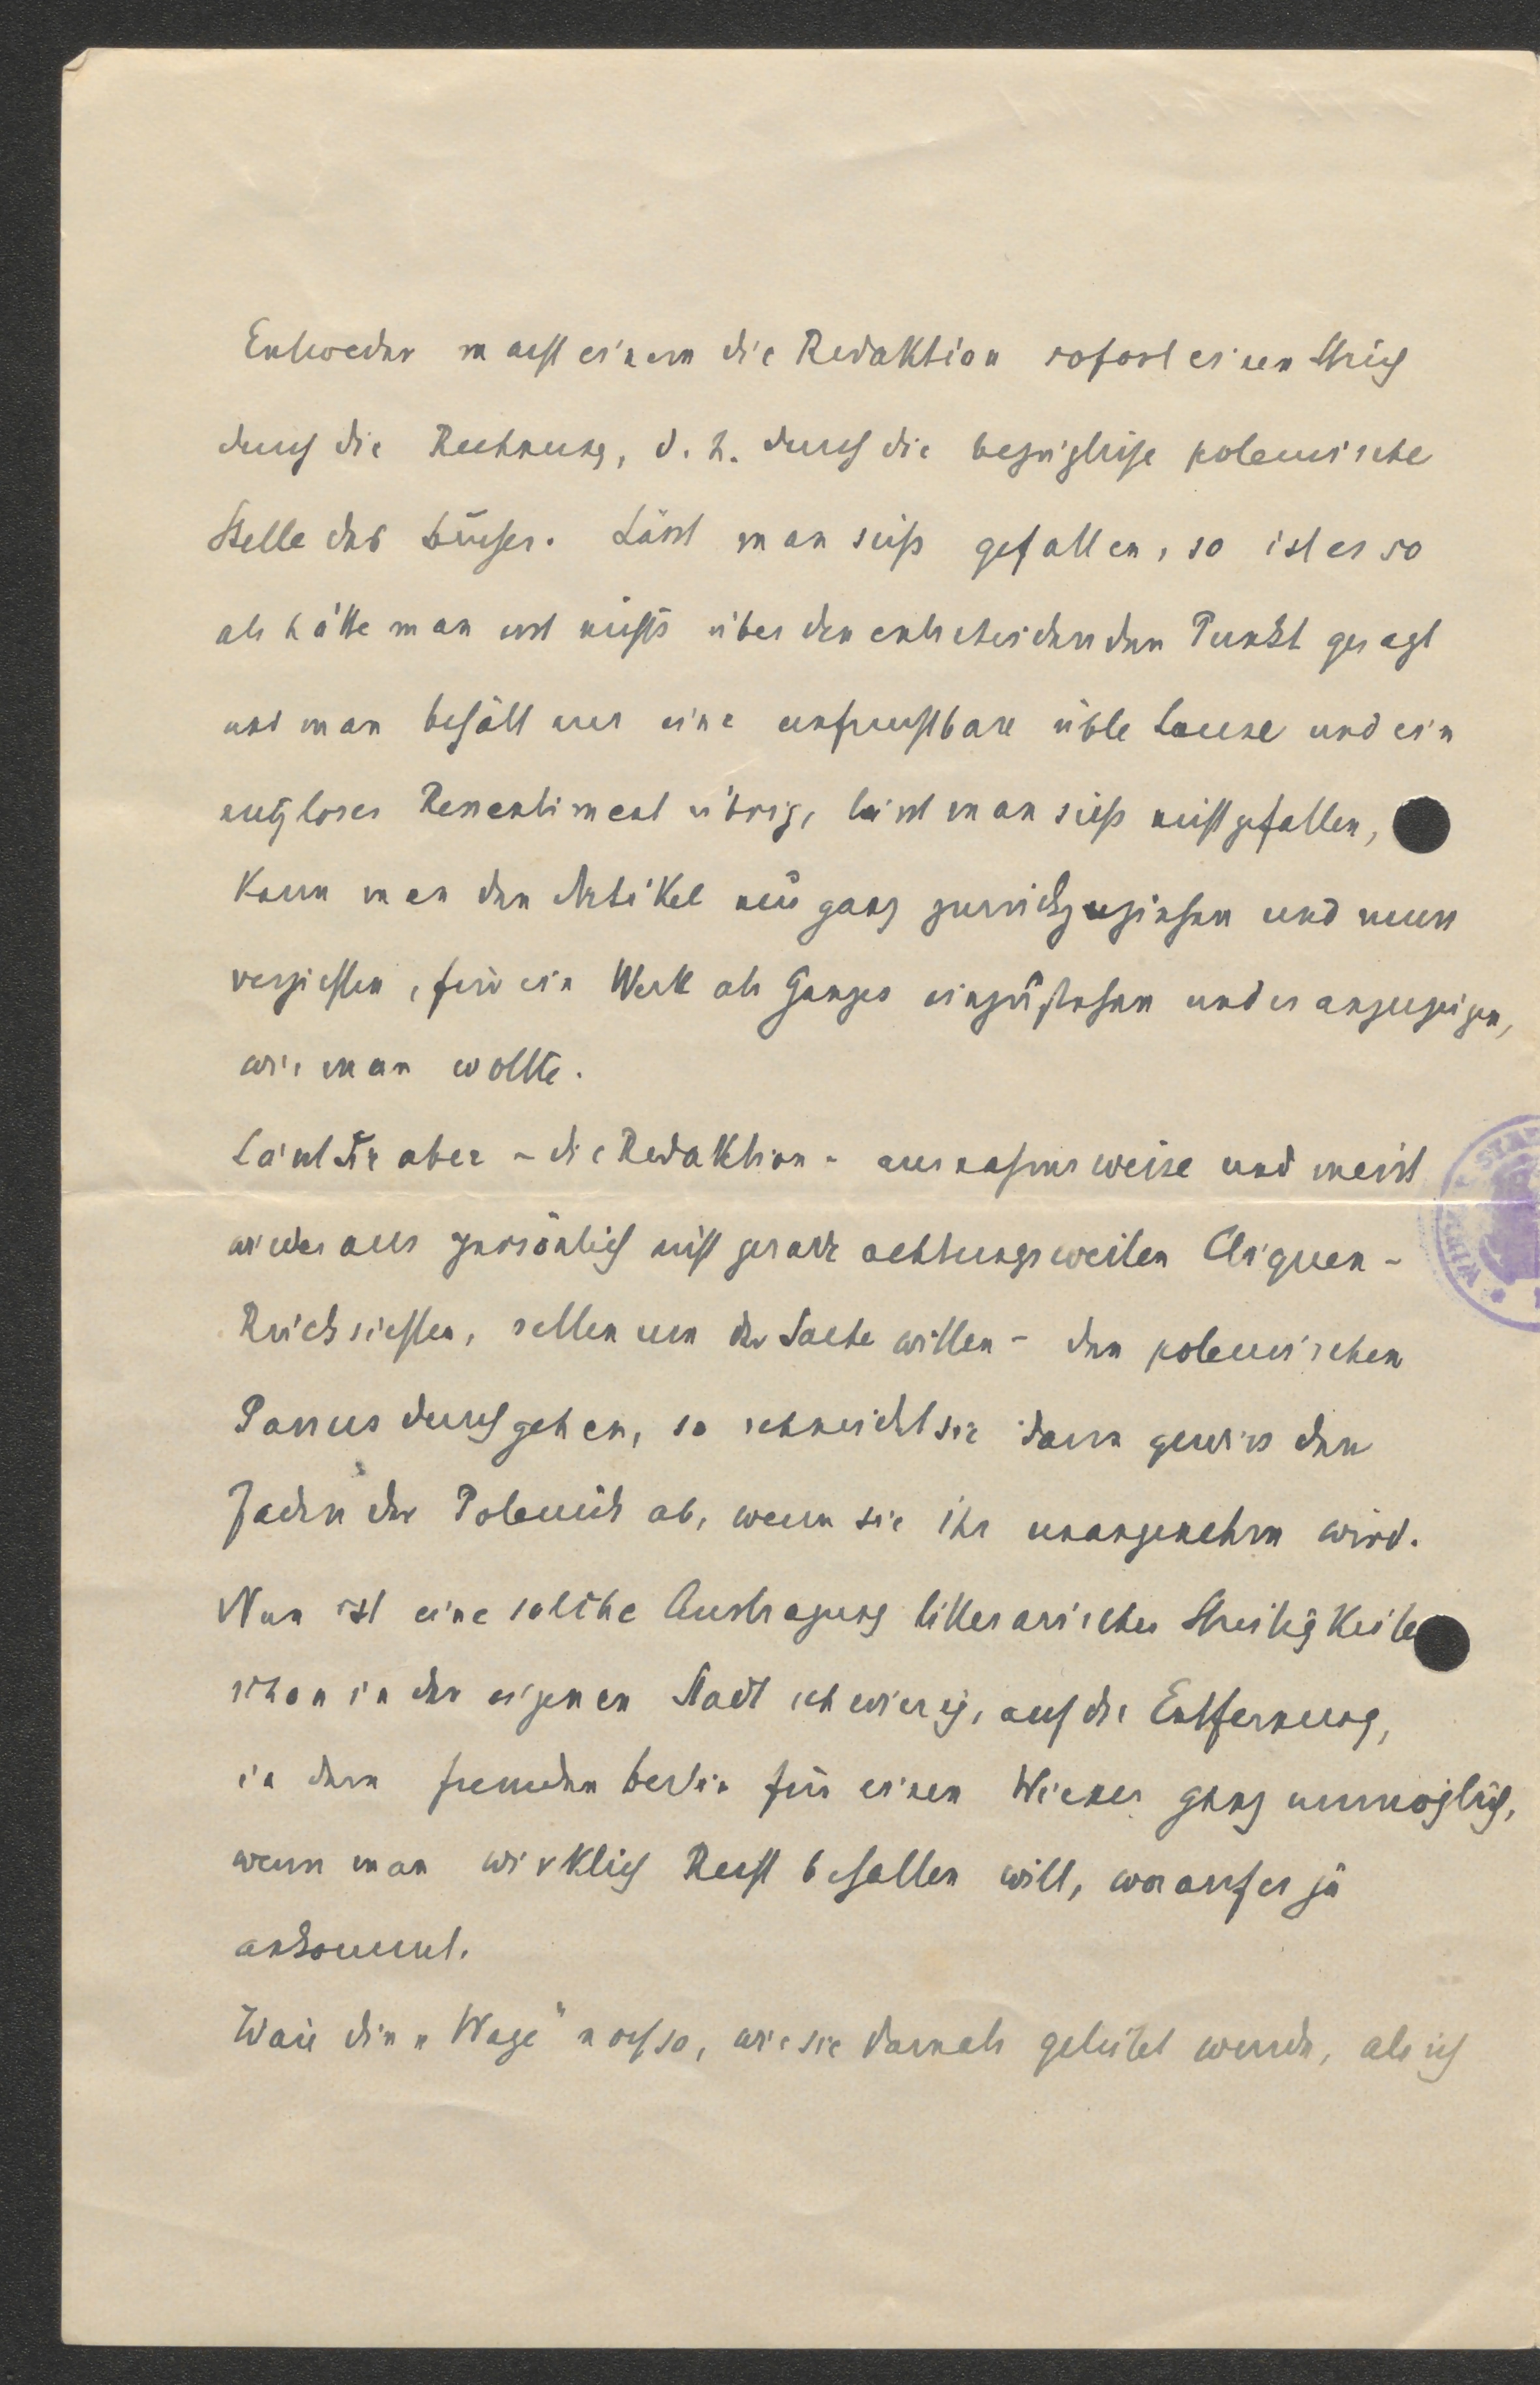 Entweder macht einem die Redaktion sofort einen Strich
durch die Rechnung, d. h. durch die bezügliche polemische
Stelle des Buches. Lässt man sichs gefallen, so ist es so
als hätte man erst nichts über den entscheidenden Punkt gesagt
und man behält nur eine unfruchtbare üble Laune und ein
nutzloses Ressentiment übrig, lässt man sichs nicht gefallen,
kann man den Artikel nur ganz zurückzuziehen und muss
verzichten, für ein Werk als Ganzes einzustehen und es anzuzeigen,
wie man wollte.
Lässt sie aber – die Redaktion – ausnahmsweise und meist
wieder aus persönlich nicht gerade achtungsweiten Cliquen-
Rücksichten, selten um der Sache willen – den polemischen
Passus durchgehen, so schneidet sie dann gewiss den
Faden der Polemik ab, wenn sie ihr unangenehm wird.
Nun ist eine solche Austragung litterarischer Streitigkeiten
schon in der eigenen Stadt schwierig, auf die Entfernung,
in dem fremden Berlin für einen Wiener ganz unmöglich,
wenn man wirklich Recht behalten will, worauf es ja
ankommt.
Wäre die „Wage" noch so, wie sie damals geleitet wurde, als ich